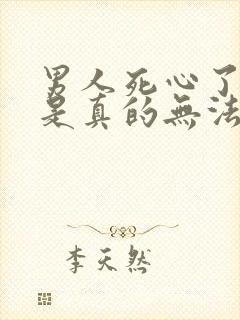 男人死心了
是真的無法
李天然